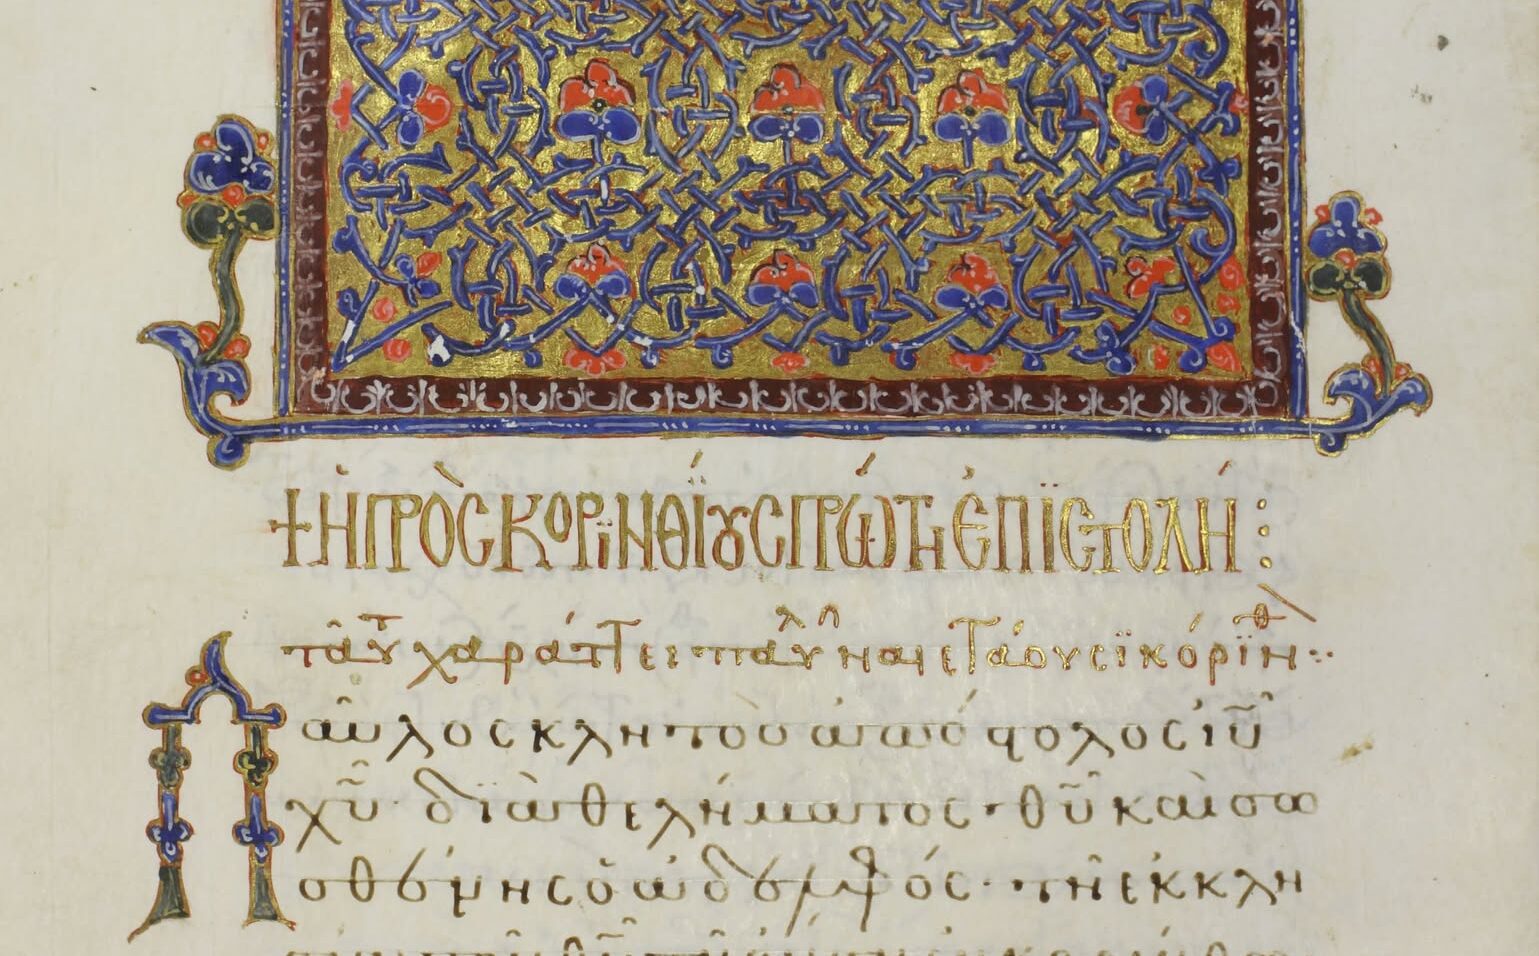 + Ἡ ΠΡῸΣ ΚΟΡΙΝΘΊΟΥΣ ΠΡΏΤΗ ἘΠΙΣΤΟΛΉ :
ταῦτ χαράττει παῦλ
αῦλος κλητὸς ἀπόστολος ἰῦ
χῦ· διὰ θελήματος· θῦ καὶ σω
σθένης ὁ ἀδελφός· τῆ ἐκκλη